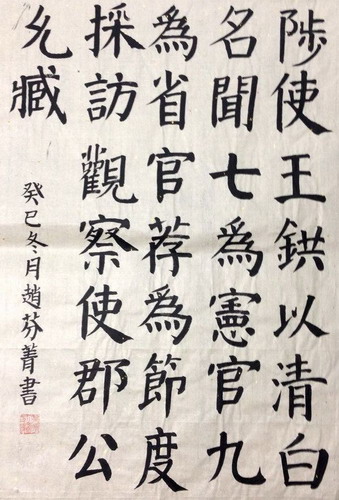 陟使王鉷以清白
名聞七為憲官九
為省官荐為節度
採訪觀察使郡公
允臧
癸巳冬月趙芬菁書